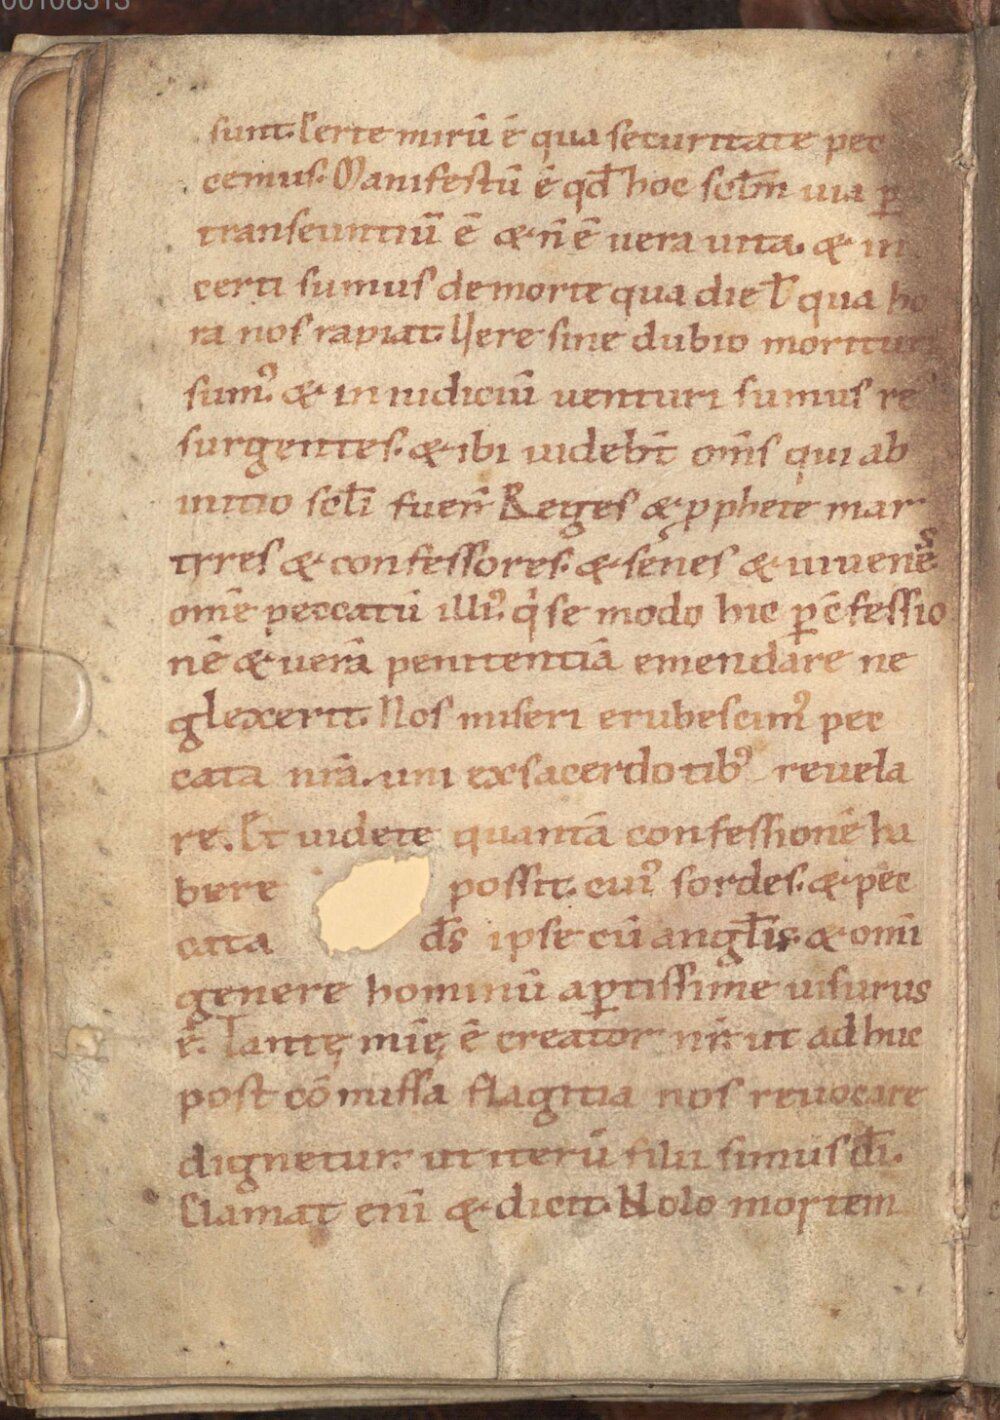 00108313
sunt. Certe mirū ē qua securitate pec
cemus. Manifestū ē qđ hoc scłm uia ꝑ
transeuntiū ē & n̄ ē uera uita. & in
certi sumus de morte qua die ł qua ho
ra nos rapiat. Uere sine dubio morituri
sum᾿ & in iudiciū uenturi sumus re
surgentes. & ibi uidebt̄ om̄s qui ab
initio scłi fuer̄ Reges & ꝓphete mar
tyres & confessores. & senes & iuuenes
om̄e peccatū illi᾿ qͥ se modo hic ꝑ c̄fessio
nē & uerā penitentiā emendare ne
glexerit. Nos miseri erubescim᾿ pec
cata nr̄a. uni ex sacerdotib᾿ reuela
re. Et uidete quantā confessionē ha
bere possit. cui᾿ sordes. & pec
cata d̄s ipse cū angłis. & om̄i
genere hominū aꝑtissime uisurus
ē. Tantę mīę ē creator nr̄ ut adhuc
post cōmissa flagitia nos reuocare
dignetur. ut iterū filii simus dī.
Clamat enī & dicit. Nolo mortem